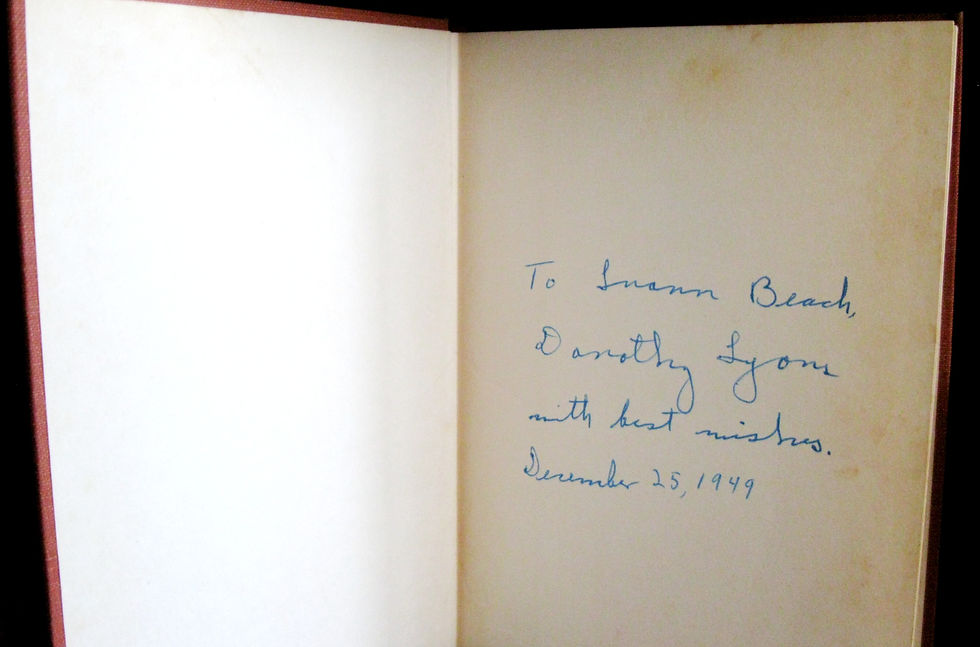 To Luann Beach,
Dorothy Lyons
with best wishes.
December 25, 1949